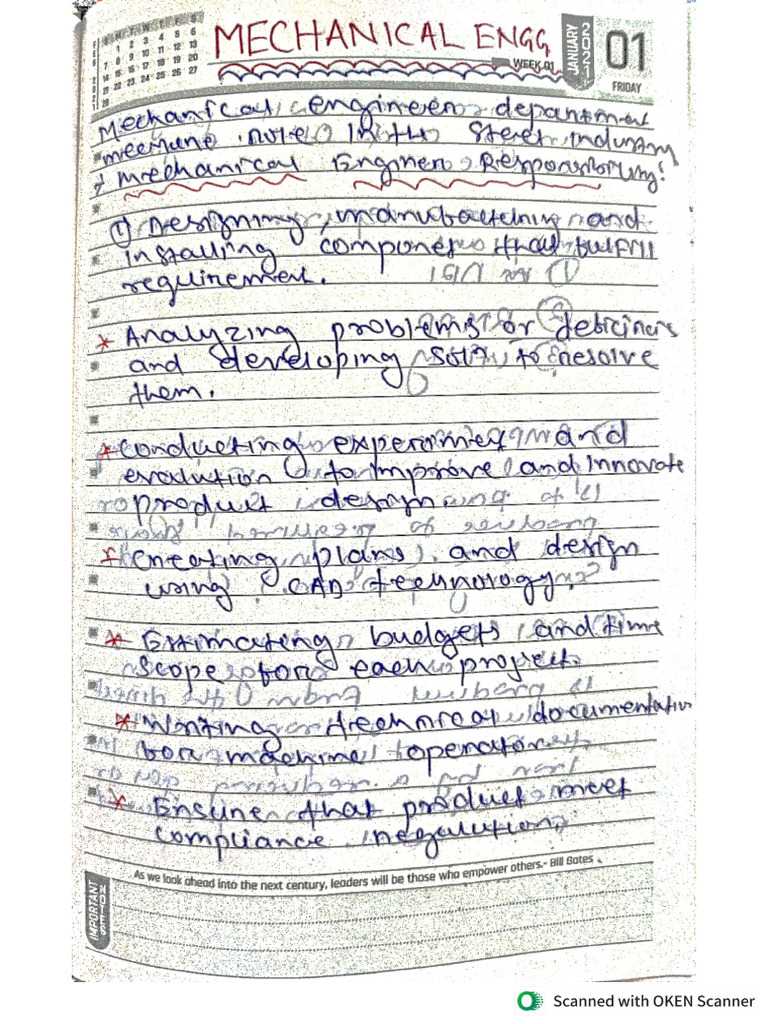 MECHANICAL ENGG
WEEK 01
JANUARY
2021
01
FRIDAY
Mechanical engineer department
role in the steel industry
Mechanical Engineer Responsibility!
① Designing, manufacturing and
installing componets that fulfill
requirement.
* Analyzing problems or deficiners
and developing solⁿ to resolve
them.
* conducting experiment and
evalution to improve and innovate
product design
* creating plans and design
using CAD technology.
* Estimating budgets and time
scope for each project
* Writing technical documentation
for machine operator
* Ensure that product meet
compliance regulution
As we look ahead into the next century, leaders will be those who empower others.- Bill Gates
IMPORTANT
NOTES
Scanned with OKEN Scanner